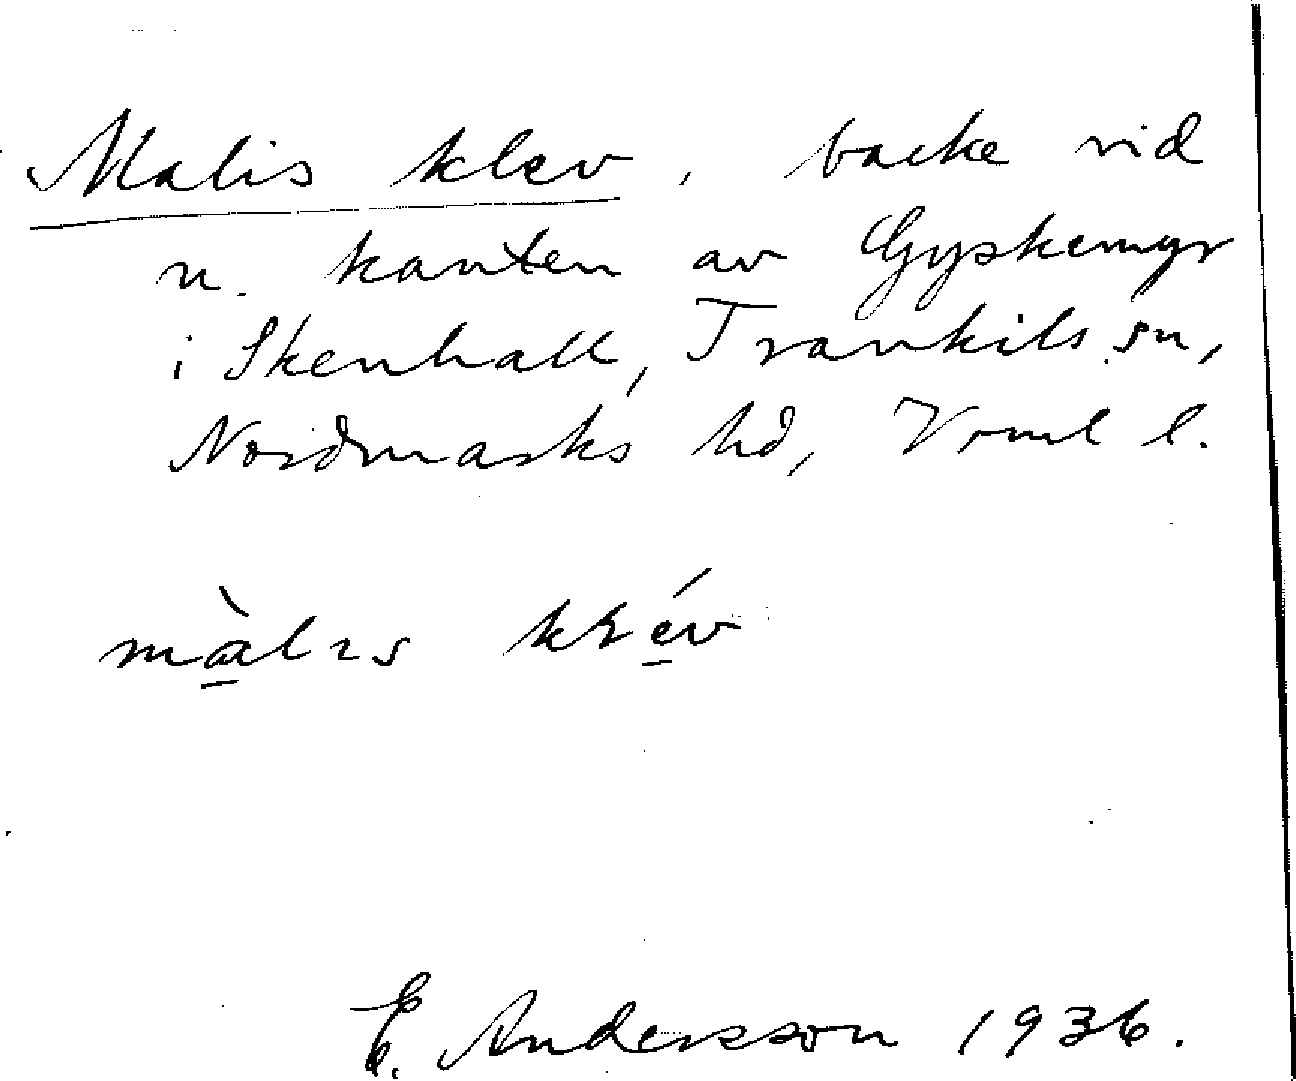 Malis klev, backe vid
n. kanten av Gyskemyr
i Skenhall, Trankils sn,
Nordmarks hd, Vrml l.
mà̱lıs kɽé̱v
E. Andersson 1936.